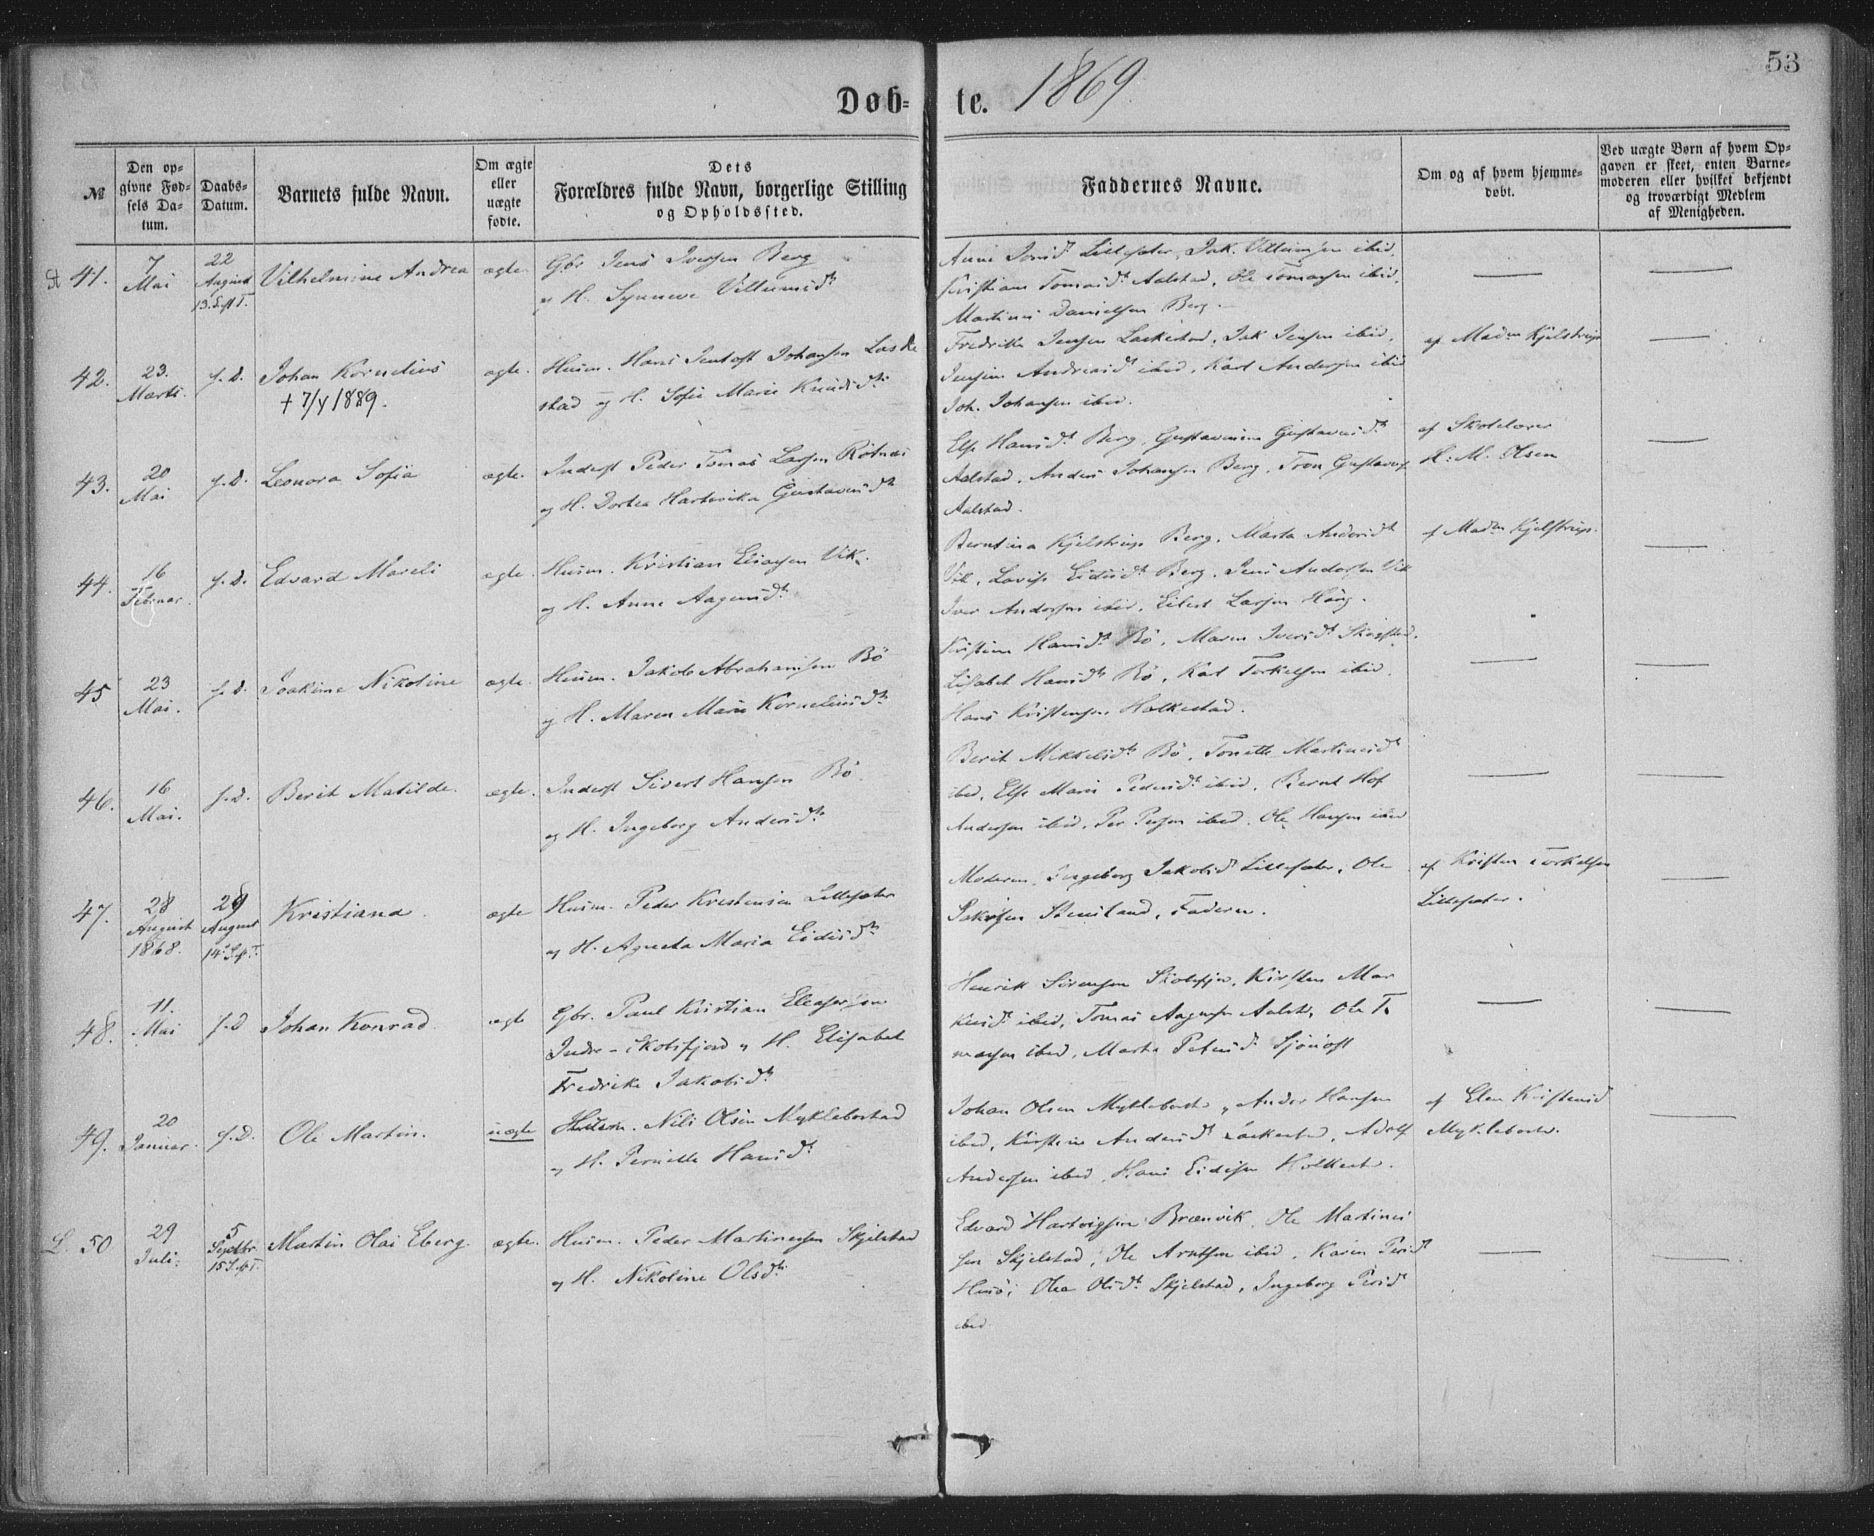 53
Døb- te. 1869
№
Den op-
givne Fød-
sels Da-
tum.
Daabs-
Datum.
Barnets fulde Navn.
Om ægte
eller
uægte
fødte.
Dets
Forældres fulde Navn, borgerlige Stilling
og Opholdssted.
Faddernes Navne.
Om og af hvem hjemme-
døbt.
Ved uægte Børn af hvem Op-
gaven er skeet, enten Barne-
moderen eller hvilket bekjendt
og troværdigt Medlem
af Menigheden.
41.
7
Mai
22
August
13. S. e. T.
Vilhelmine Andrea
ægte.
Gbr. Jens Iversen Berg
og H. Synneve Villumsdt.
Anne Lillesæter, Jak. Villumsen ibid,
Tomasdt. Aalstad, Ole Tomassen ibid,
Martinus Danielsen Berg.
42.
23.
Marts.
s. D.
Johan Kornelius
+ 7/4 1889.
ægte.
Husm. Hans Jentoft Johansen Laske
stad og H. Sofie Marie Knudsdt.
Fredrikke Jensen Laskestad, Jak Jensen ibid,
Andreasdt. ibid, Karl Andersen ibid
Joh. Johansen ibid.
af Madm Kjelstrup
43.
20
Mai
s. D.
Leonora Sofia
ægte.
Inderst Peder Tomas Larsen Rötnes
og H. Dortea Hartvika Gustavusdt
Else Hansdt. Berg, Gustavusdt.
Aalstad, Anders Johansen Berg, Tron Gustavs.
Aalstad.
af Skolelærer
H. M. Olsen
44.
16
Februar.
s. D.
Edvard Mareli
ægte.
Husm. Kristian Eliasen Vik.
og H. Anne Aagesdt.
Berntina Kjelstrup Berg, Marta Andersdt
Vik, Lovise Berg, Jens Andersen Vik
Iver Andersen ibid, Eilert Larsen Haug.
af Madm Kjelstrup.
45
23
Mai.
s. D.
Joakime Nikoline
ægte.
Husm. Jakob Abrahamsen Bö
og H. Maren Marie Korneliusdt.
Kristine Hansdt. Bö, Maren Iversdt. Skagstad,
Lisabet Hansdt. Bö, Karl Torkelsen ibid.
Hans Kristensen Holkestad.
46.
16
Mai.
s. D.
Berit Matilde.
ægte.
Inderst Sivert Hansen Bö.
og H. Ingeborg Andersdt.
Berit Mikkelsdt. Bö, Tonette Martinusdt
ibid, Else Marie Pedersdt. ibid, Bernt Hof
Andersen ibid, Per Persen ibid, Ole Hansen ibid
47.
28
August
1868.
29
August
14. S. e. T.
Kristiana.
ægte
Husm. Peder Kristensen Lillesæter
og H. Agneta Maria Eidisdt.
Moderen, Ingeborg Jakobsd. Lillesæter, Ole
Jakobsen Stensland, Faderen.
af Kristen Torkelsen
Lillesæter.
48.
11.
Mai
s. D
Johan Konrad.
ægte
Gbr. Paul Kristian Eleasersen
Indre-Skotsfjord og H. Elisabet
Fredrike Jakobsdt.
Henrik Sörensen Skotsfjor, Kirsten Mar
kusd. ibid, Tomas Aagesen Aalst, Ole To
massen ibid, Marta Petersd. Sjönost
49.
20
Januar.
s. D.
Ole Martin.
uægte
Husm. Nils Olsen Myklebostad
og H. Pernille Hansdt.
Johan Olsen Myklebost, Anders Hansen
ibid, Kirstine Andersdt Laskestad, Adolf
Andersen ibid, Hans Eidisen Holkest.
af Elen Kristensd
Myklebost.
L. 50
29
Juli.
5
Septbr
15. S. e. T.
Martin Olai Eberg.
ægte.
Husm. Peder Martinussen Skjelstad
og H. Nikoline Olsdt.
Edvard Hartvigsen Brænvik, Ole Martinus
sen Skjelstad, Ole Arntsen ibid, Karen Persdt
Husö, Olea Olsdt. Skjelstad, Ingeborg Persdt
ibid